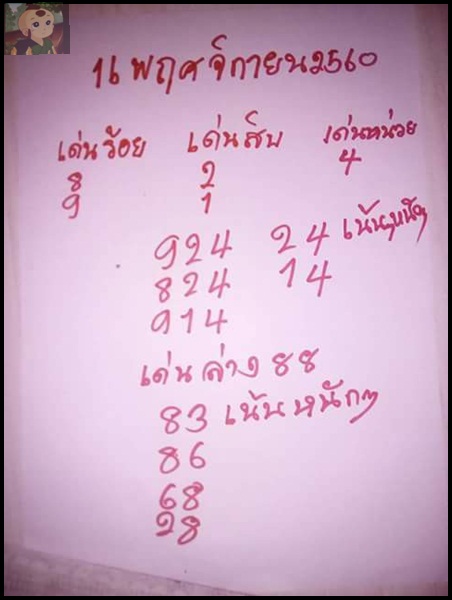 16 พฤศจิกายน 2560
เด่นร้อย เด่นสิบ เด่นหน่วย
8 2 4
9 1
924 24 เน้นๆหนักๆ
824 14
914
เด่นล่าง 88
83 เน้นหนักๆ
86
68
28